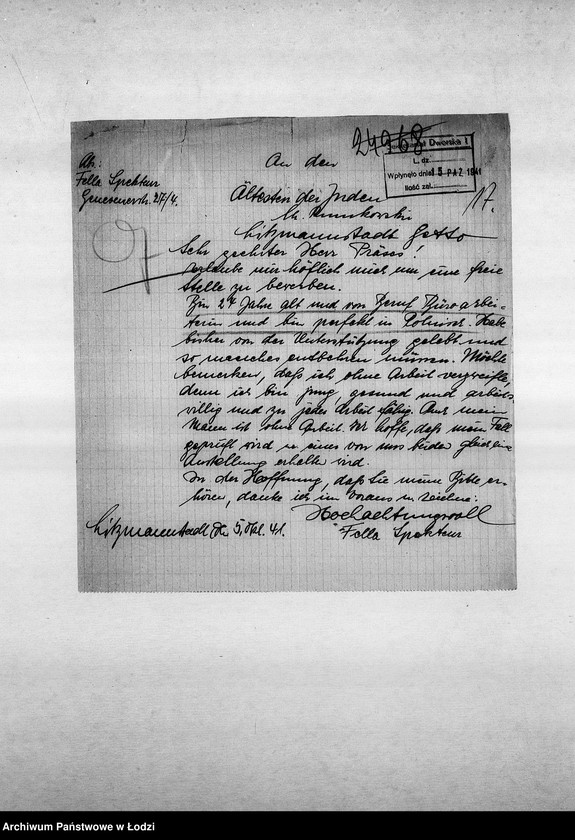 24968
Dworska 1
L. dz.
Wpłynęło dnia 15 PAZ 1941
Ilość zał.
17.
Ab:
Fella Spekteur
Gnesenerstr. 27/4.
An den
Ältesten der Juden
Ch. Rumkowski
Litzmannstadt Getto
Sehr geehrter Herr Präses!
Erlaube mir höflich mich um eine freie
Stelle zu bewerben.
Bin 24 Jahre alt und von Beruf Büroarbei-
terin und bin perfekt in Polnisch. Habe
bisher von der Unterstützung gelebt und
so manches entbehren müssen. Möchte
bemerken, daß ich ohne Arbeit verzweifle,
denn ich bin jung, gesund und arbeits-
willig und zu jeder Arbeit fähig. Auch mein
Mann ist ohne Arbeit. Ich hoffe, daß mein Fall
geprüft wird u. eines von uns beiden eine
Anstellung erhalten wird.
In der Hoffnung, daß Sie meine Bitte er-
hören, danke ich im Voraus u. zeichne:
Hochachtungsvoll
Fella Spekteur
Litzmannstadt 5. Okt. 41.
Archiwum Państwowe w Łodzi